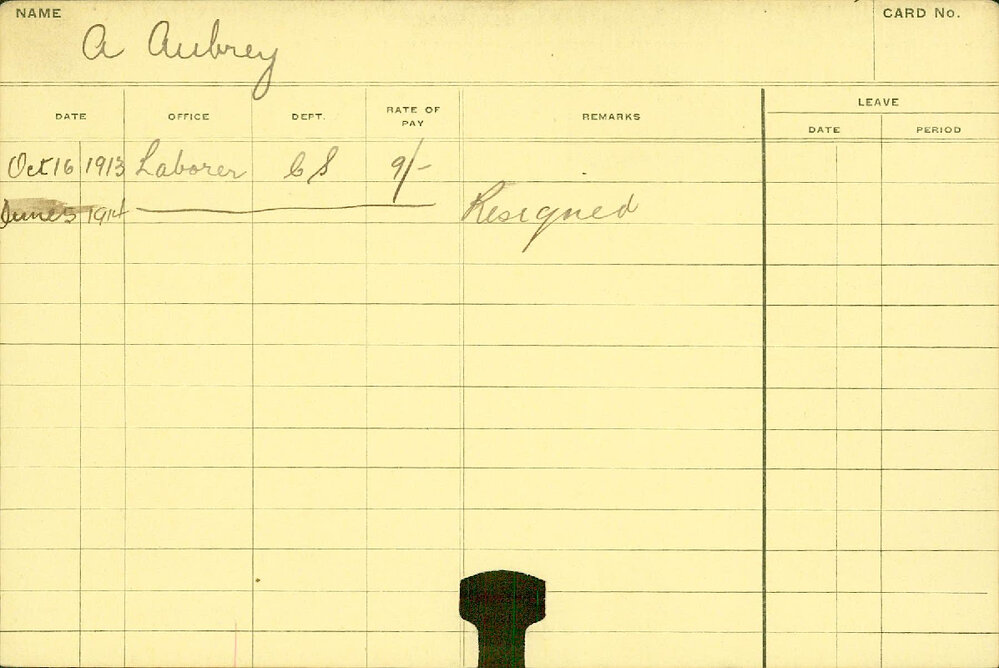 NAME CARD No.
A Aubrey
LEAVE
DATE OFFICE DEPT. RATE OF PAY REMARKS DATE PERIOD
Oct 16 1913 Laborer CS 9/-
June 5 1914 Resigned